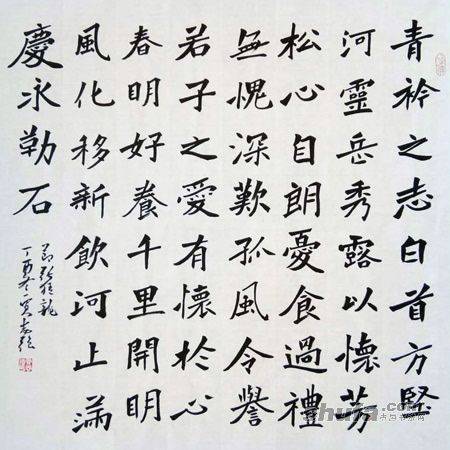 青衿之志白首方堅
河靈岳秀露以懷芳
松心自朗憂食過禮
無愧深歎孤風令譽
若子之愛有懷於心
春明好養千里開明
風化移新飲河止滿
慶永勒石
節張猛龍
丁酉冬